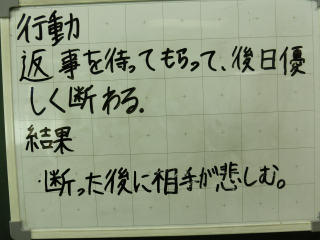 行動
返事を待ってもらって、後日優
しく断わる.
結果
・断った後に相手が悲しむ。